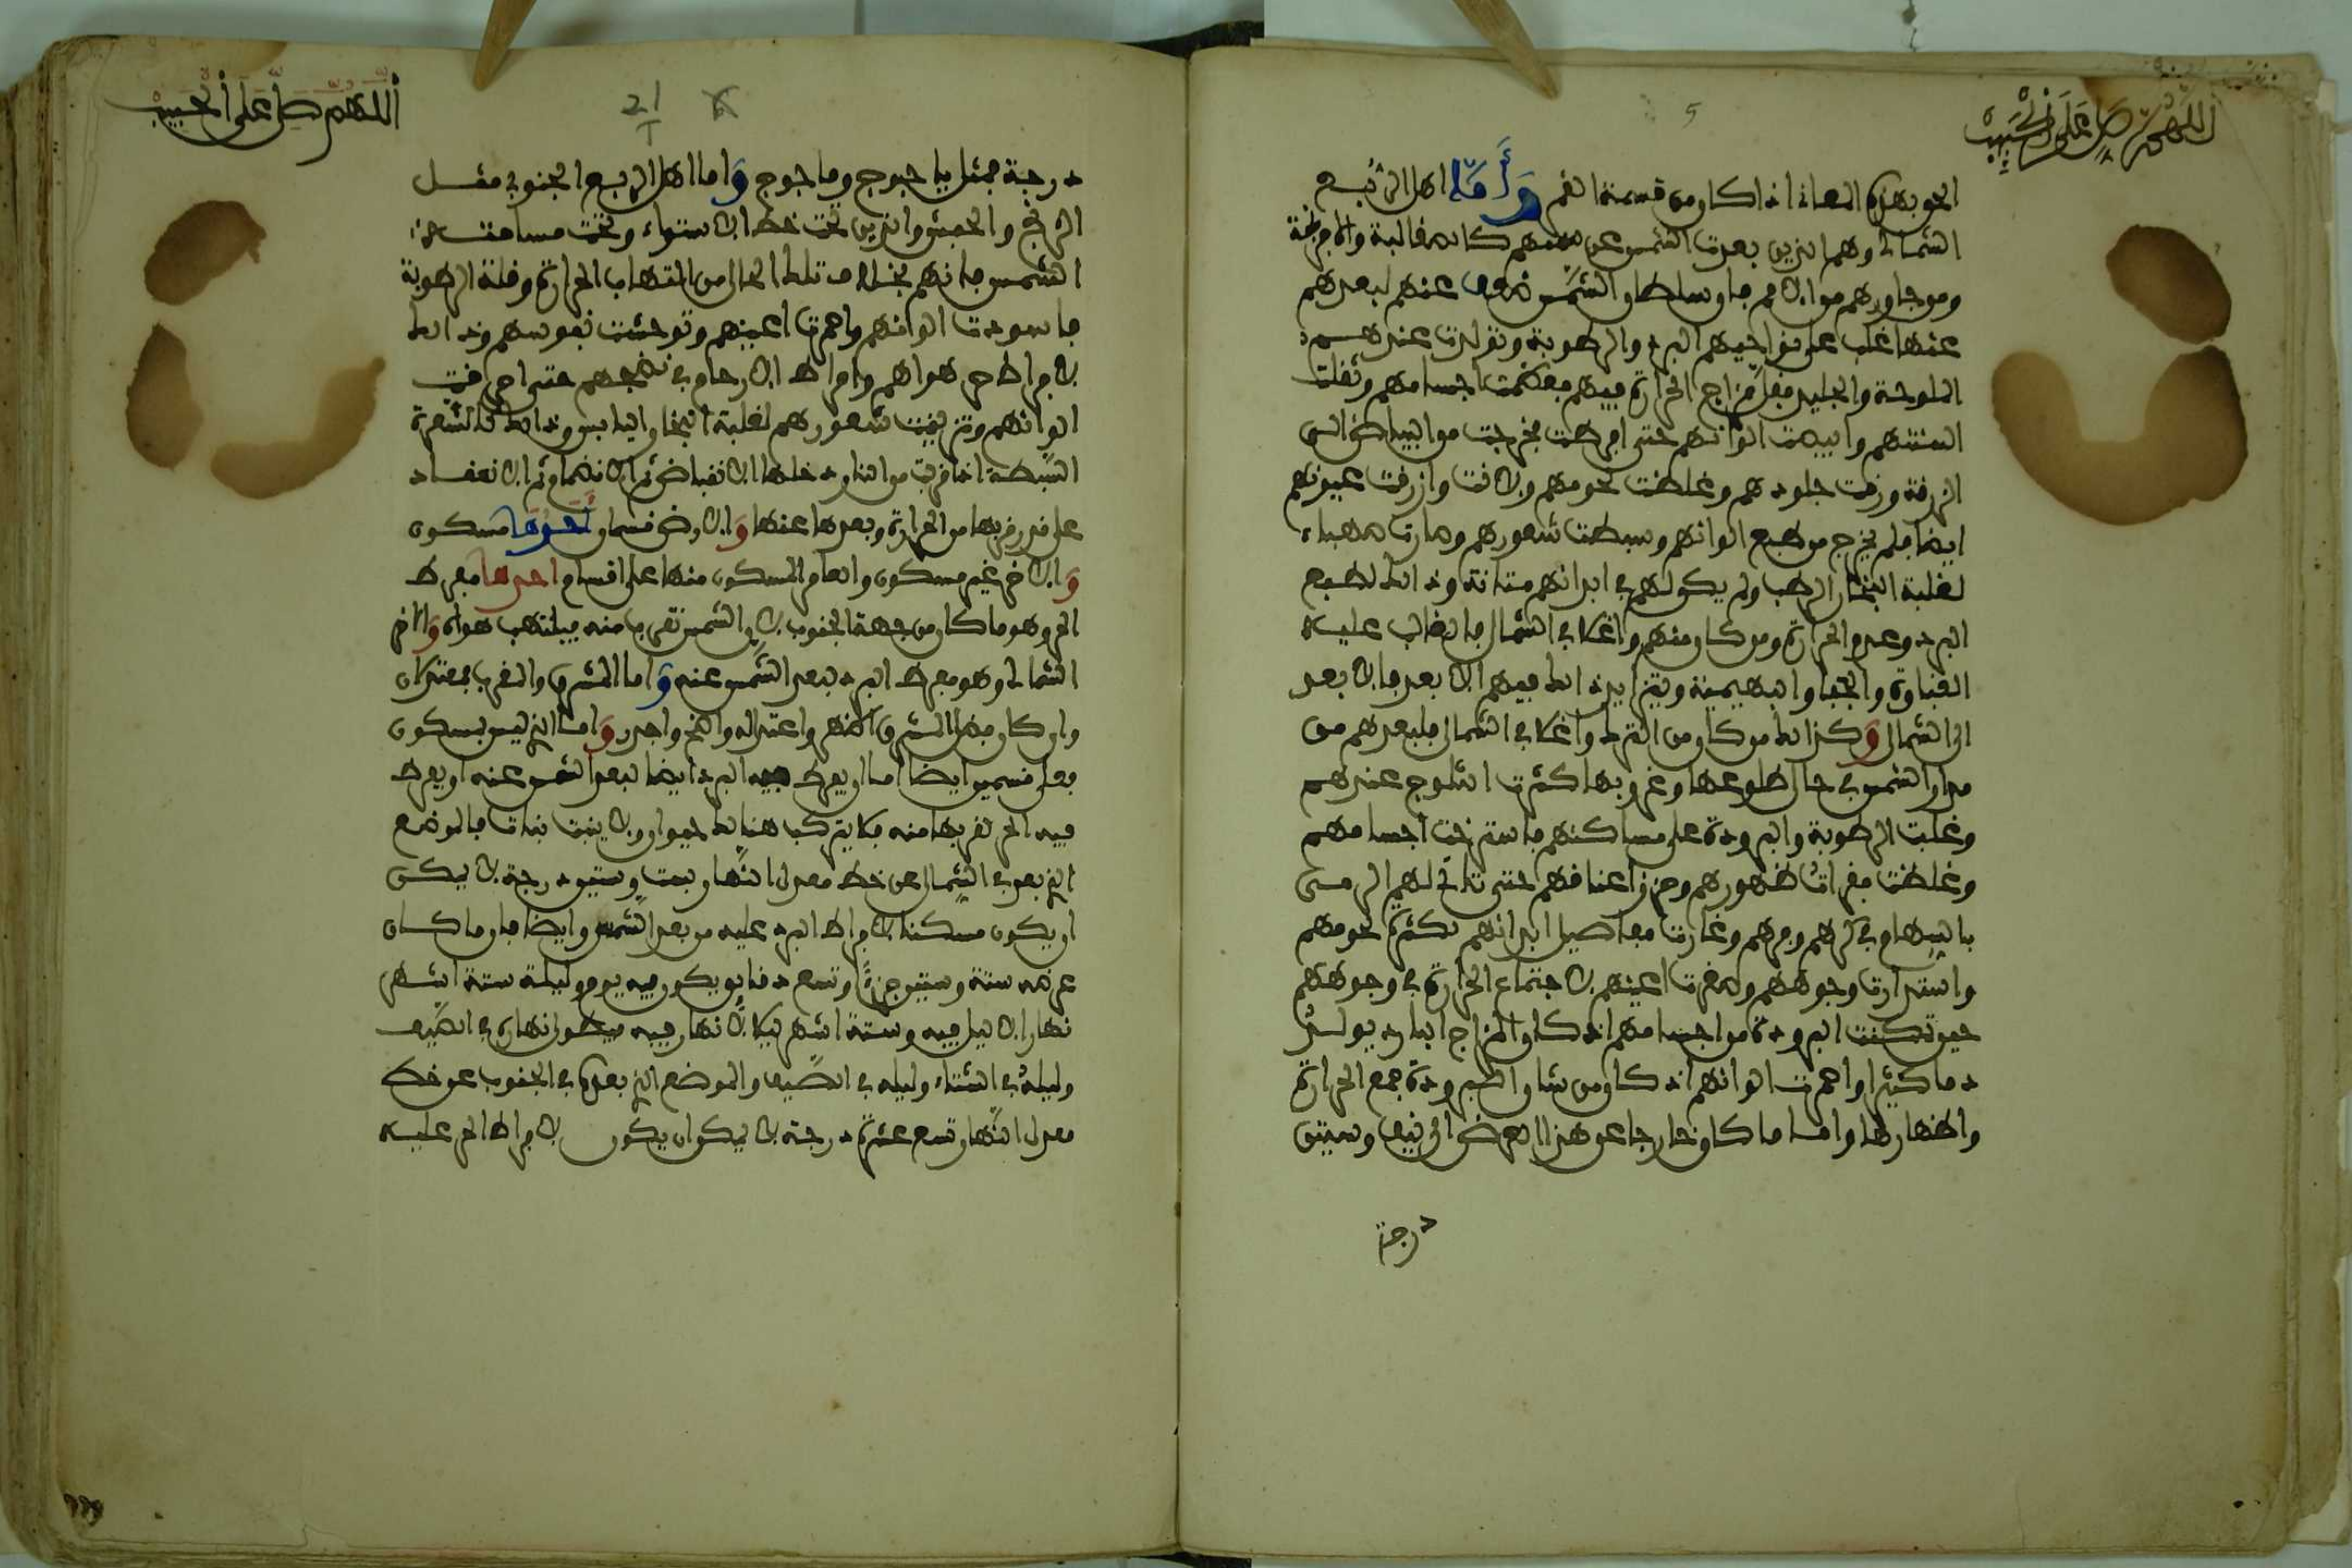 اللهم صل على الحبيب
5
الجو بهذه المعاني اذا كان من قسمة القمر وَأَمَّا اهل الربع
الشمالي وهم الذين بعدت الشمس عن سمتهم كالصقالبة والافرنجة
ومن جاورهم من الامم فان سلطان الشمس ضعف عندهم لبعدهم
عنها فغلب على نواحيهم البرد والرطوبة وتواترت عندهم
الثلوجة والجليد فقل مزاج الحرارة فيهم فعظمت اجسامهم وثقلت
السنتهم وابيضت الوانهم حتى افرطت فخرجت من البياض الى
الزرقة ورقت جلودهم وغلظت لحومهم ولانت وازرقت عيونهم
ايضا فلم يخرج من طبع الوانهم وسبطت شعورهم وصارت صهباء
لغلبة البخار الرطب ولم يكن لهم في ابدانهم متانة وذلك لطبع
البرد وعدم الحرارة ومن كان منهم واغلا في الشمال فالغالب عليه
الغباوة والجفا والبهيمية ويتزايد ذلك فيهم الابعد فالابعد
الى الشمال وَكذلك من كان من الترك واغلا في الشمال فلبعدهم من
مدار الشمس في حال طلوعها وغروبها كثرت الثلوج عندهم
وغلبت الرطوبة والبرودة على مساكنهم فاسترخت اجسامهم
وغلظت فقرات ظهورهم وخرز اعناقهم حتى تاتى لهم الرمي
بالسهام في كرهم وفرهم وغارت مفاصل ابدانهم لكثرة لحومهم
واستدارت وجوههم وصغرت اعينهم لاجتماع الحرارة في وجوههم
حين تمكنت البرودة من اجسامهم اذ كان المزاج البارد يولد
دما كثيرا واحمرت الوانهم اذ كان من شان البرودة جمع الحرارة
واظهارها واما ما كان خارجا عن هذا العرض الى نيف وستين
درجة
اللهم صل على الحبيب
21
درجة فمثل ياجوج وماجوج وَاما اهل الربع الجنوبي مثل
الزنج والحبش والذين تحت خط الاستواء وتحت مسامتة
الشمس فانهم بخلاف تلك الحال من التهاب الحرارة وقلة الرطوبة
فاسودت الوانهم واحمرت اعينهم وتوحشت نفوسهم وذلك
لافراط حر هواهم وافراط الارحام في نضجهم حتى احترقت
الوانهم وتزيفت شعورهم لغلبة البخار اليابس وذلك كالشعرة
السبطة اذا قربت من النار دخلها الانقباض ثم الانضمام ثم الانعقاد
على قدر قربها من الحرارة وبعدها عنها وَالارض قسمان أحدها مسكون
وَالاخر غير مسكون والعامر المسكون منها على اقسام احدها مفرط
الحر وهو ما كان من جهة الجنوب لان الشمس تقرب منه فيلتهب هواه وَالاخر
الشمالي وهو مفرط البرد لبعد الشمس عنه وَاما المشرق والمغرب فمعتدلان
وان كان فضل المشرق اظهر واعتداله واضح واجدر وَاما الذي ليس بمسكون
فعلى قسمين ايضا اما ان يفرط فيه البرد ايضا لبعد الشمس عنه او يفرط
فيه الحر لقربها منه فلا يتركب هنالك حيوان ولا ينبت نبات فالموضع
الذي بعد في الشمال عن خط معدل النهار بست وستين درجة لا يمكن
ان يكون مسكنا لافراط البرد عليه من بعد الشمس وايضا فان ما كان
عرضه ستة وستين جزءا وتسع دقايق يكون فيه يوم وليلة ستة اشهر
نهارا لا ليل فيه وستة اشهر ليلا لا نهار فيه فيطول نهاره في الصيف
وليله في الشتاء وليله في الصيف والموضع الذي بعده في الجنوب عن خط
معدل النهار تسع عشرة درجة لا يمكن ان يكون لافراط الحر عليه